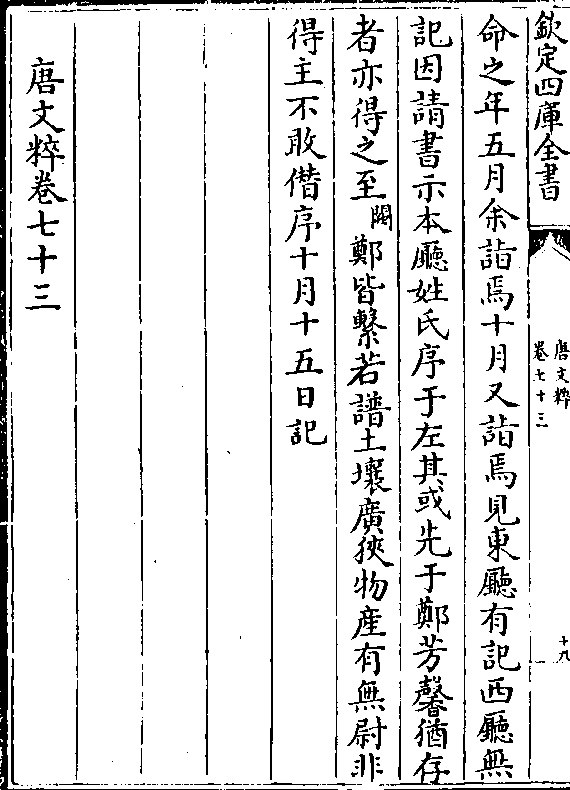 欽定四庫全書
唐文粹
卷七十三
十九
命之年五月余詣焉十月又詣焉見東廳有記西廳無
記因請書示本廳姓氏序于左其或先于鄭芳馨猶存
者亦得之至闕鄭皆繫若譜土壤廣狹物産有無尉非
得主不敢僭序十月十五日記
唐文粹卷七十三